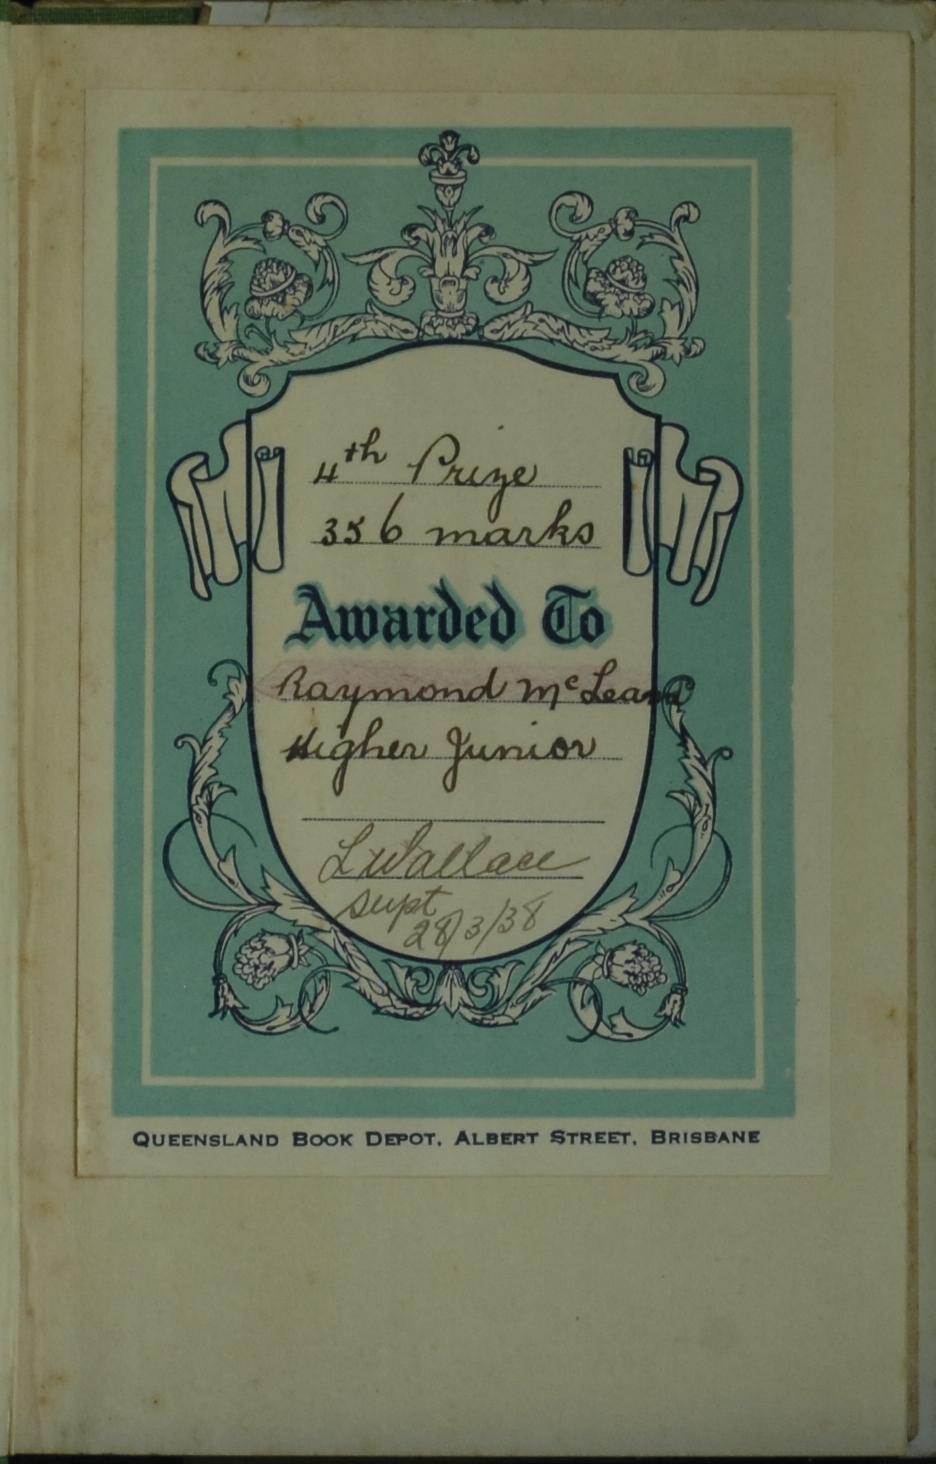 4th Prize
356 marks
Awarded To
Raymond McLean
Higher Junior
L Wallace
Supt
28/3/38
QUEENSLAND BOOK DEPOT, ALBERT STREET, BRISBANE